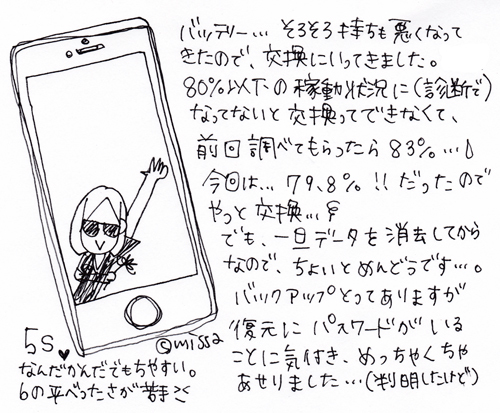 バッテリー… そろそろ持ちも悪くなって
きたので、交換にいってきました。
80%以下の稼動状況に(診断で)
なってないと交換ってできなくて、
前回調べてもらったら83%…
今回は… 79.8%!!だったので
やっと交換…
でも、一旦データを消去してから
なので、ちょいとめんどうです…。
バックアップとってありますが
復元にパスワードがいる
ことに気付き、めっちゃくちゃ
あせりました…(判明したけど)
©missa
5s♥
なんだかんだでもちやすい。
6の平べったさが苦手